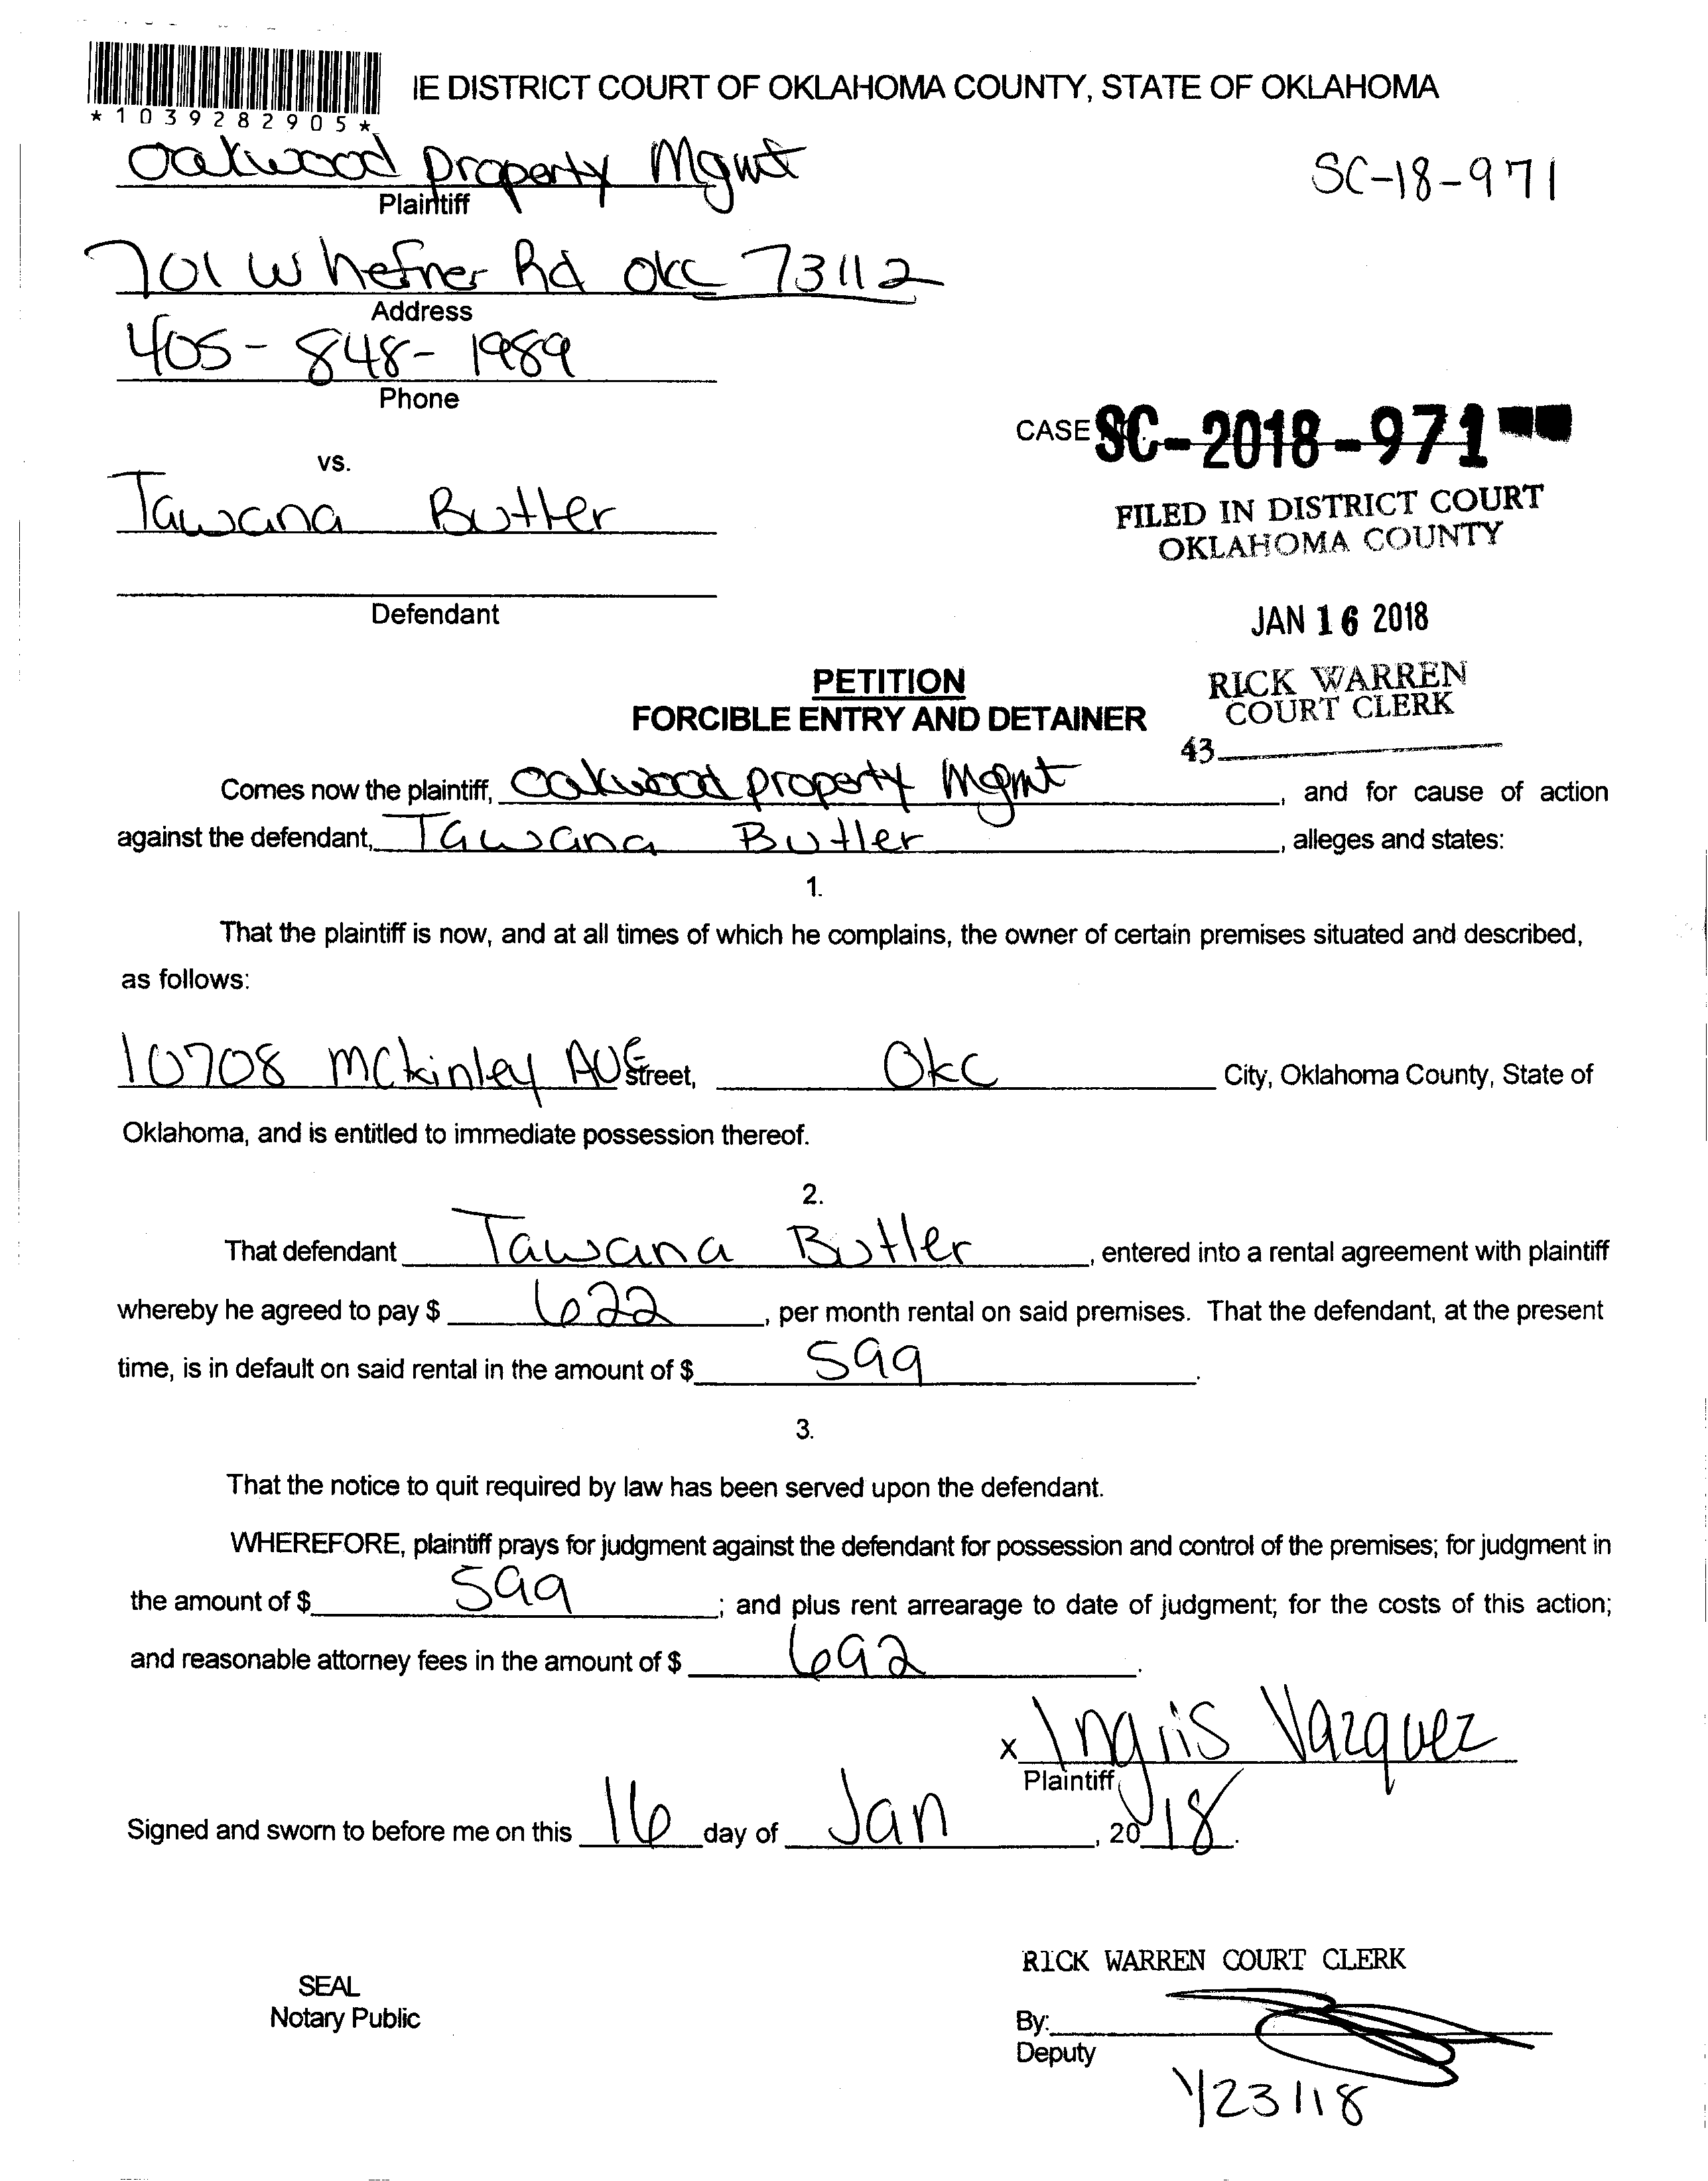 IE DISTRICT COURT OF OKLAHOMA COUNTY, STATE OF OKLAHOMA
*1039282905*
Oakwood property Mgmt
SC-18-971
Plaintiff
701 W hefner Rd OKC 73112
Address
405-848-1989
Phone
CASE SC-2018-971
vs.
Tawana Butler
FILED IN DISTRICT COURT
OKLAHOMA COUNTY
Defendant
JAN 16 2018
PETITION
FORCIBLE ENTRY AND DETAINER
RICK WARREN
COURT CLERK
43
Comes now the plaintiff, Oakwood property Mgmt, and for cause of action
against the defendant, Tawana Butler, alleges and states:
1.
That the plaintiff is now, and at all times of which he complains, the owner of certain premises situated and described,
as follows:
10708 MCkinley AVE Street, OKC City, Oklahoma County, State of
Oklahoma, and is entitled to immediate possession thereof.
2.
That defendant Tawana Butler, entered into a rental agreement with plaintiff
whereby he agreed to pay $ 622, per month rental on said premises. That the defendant, at the present
time, is in default on said rental in the amount of $ 599.
3.
That the notice to quit required by law has been served upon the defendant.
WHEREFORE, plaintiff prays for judgment against the defendant for possession and control of the premises; for judgment in
the amount of $ 599; and plus rent arrearage to date of judgment; for the costs of this action;
and reasonable attorney fees in the amount of $ 692.
x Ingris Vazquez
Plaintiff
Signed and sworn to before me on this 16 day of Jan, 2018.
RICK WARREN COURT CLERK
SEAL
Notary Public
By:
Deputy
1/23/18